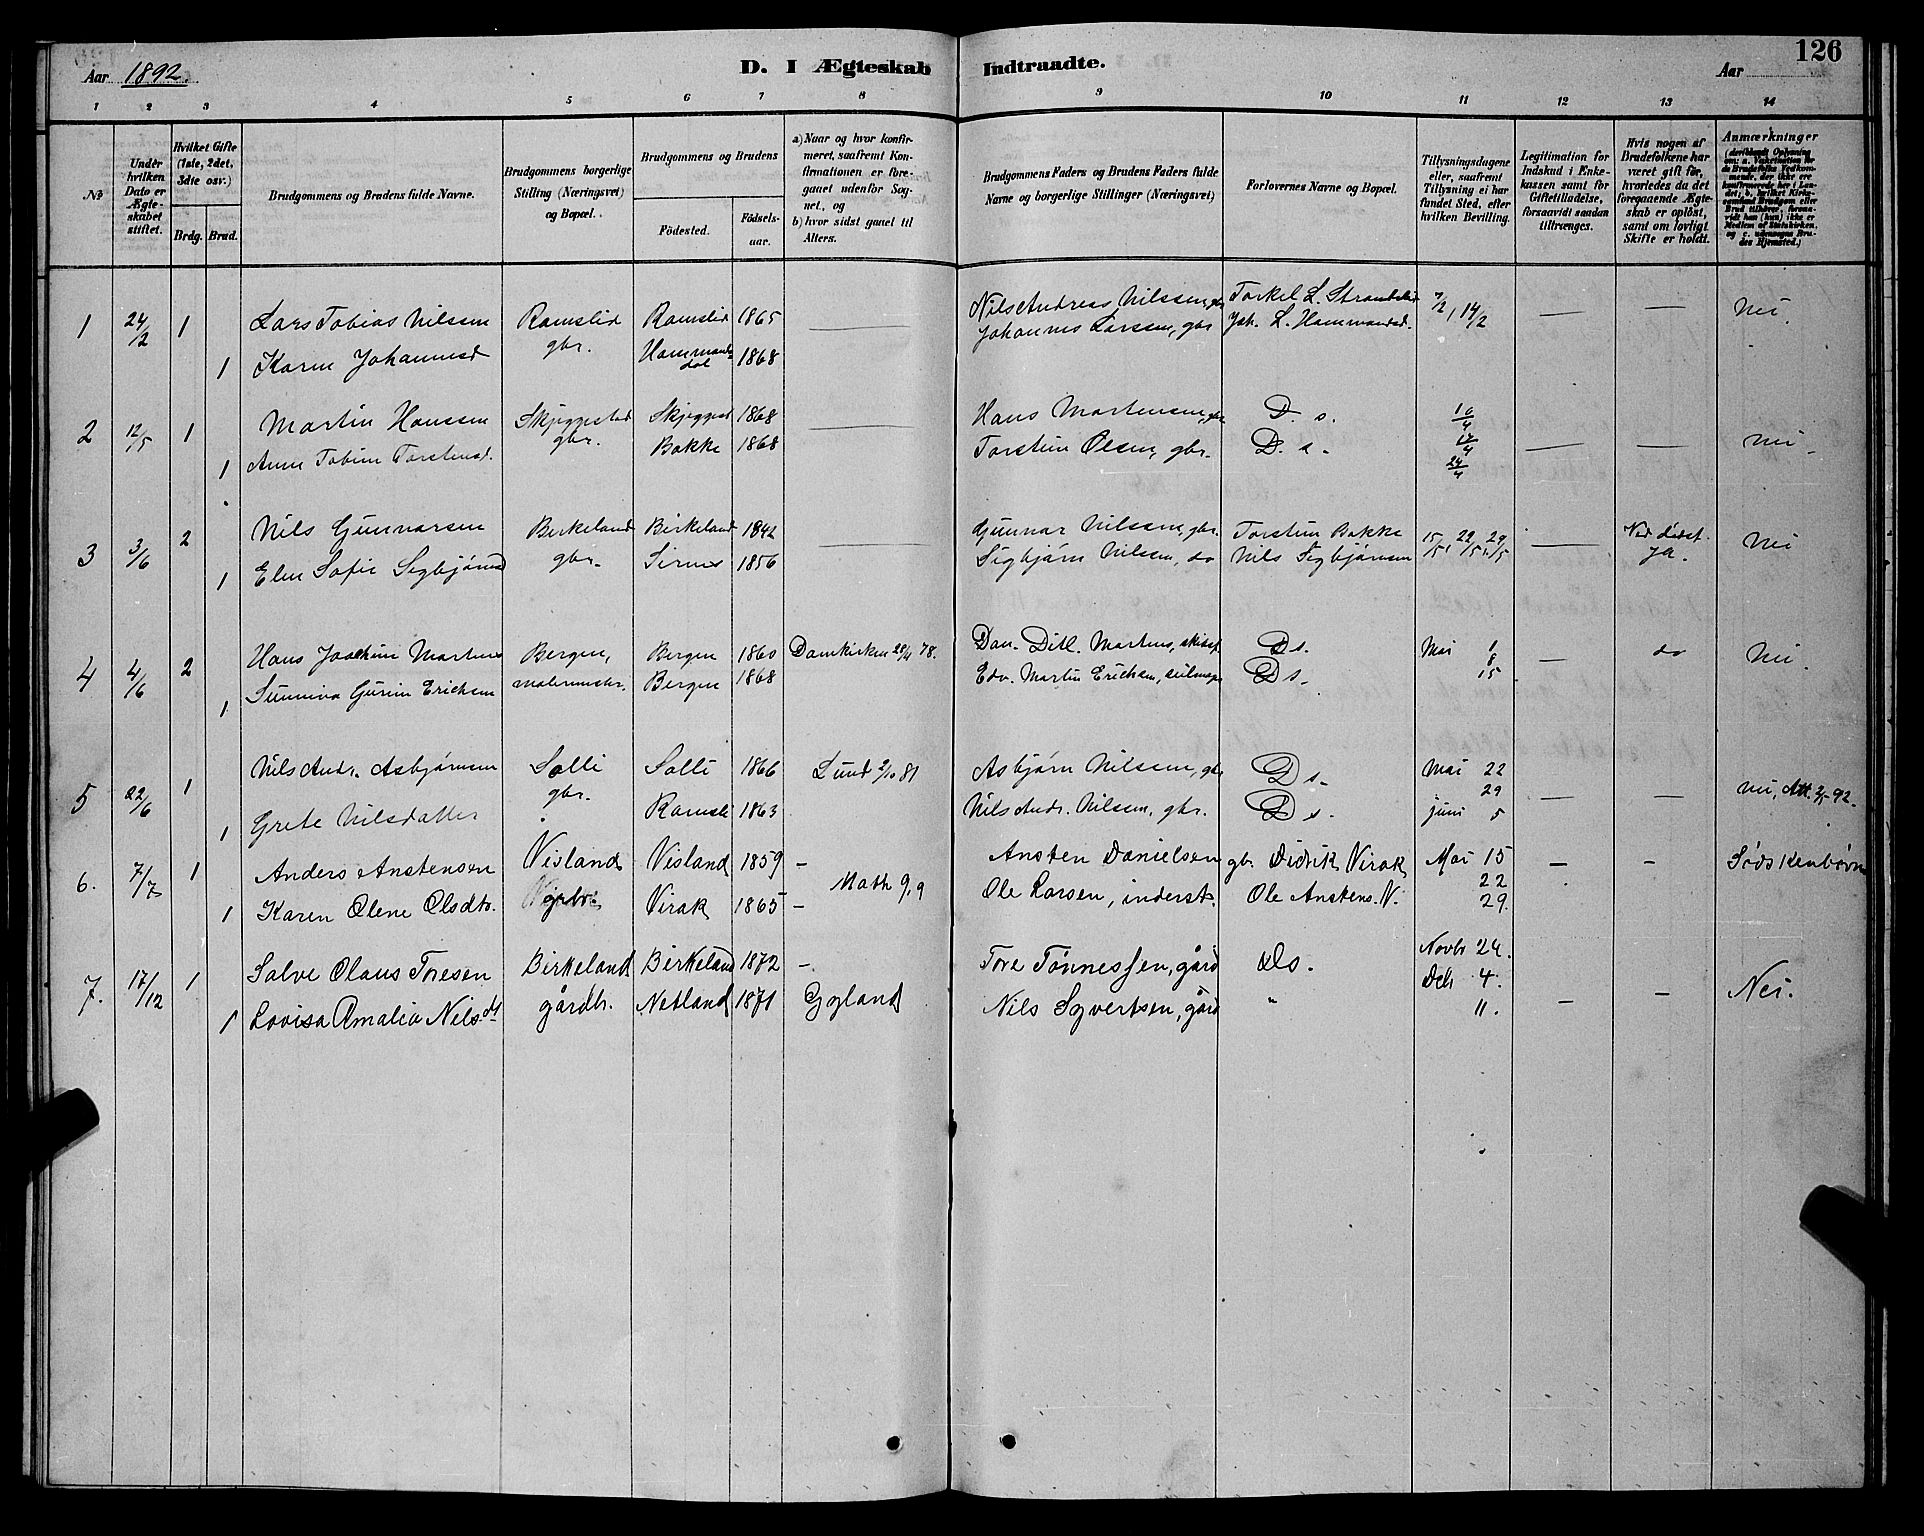 126
Aar 1892.
D. I Ægteskab Indtraadte.
Aar
1 2 3 4 5 6 7 8 9 10 11 12 13 14
No
Under hvilken Dato er Ægteskabet stiftet.
Hvilket Gifte (1ste, 2det, 3die osv.)
Brdg. Brud.
Brudgommens og Brudens fulde Navne.
Brudgommens borgerlige Stilling (Næringsvei) og Bopæl.
Brudgommens og Brudens
Födested.
Födselsaar.
a) Naar og hvor konfirmeret, saafremt Konfirmationen er foregaaet udenfor Sognet, og
b) hvor sidst gaaet til Alters.
Brudgommens Faders og Brudens Faders fulde Navne og borgerlige Stillinger (Næringsvei)
Forlovernes Navne og Bopæl.
Tillysningsdagene eller, saafremt Tillysning ei har fundet Sted, efter hvilken Bevilling.
Legitimation for Indskud i Enkekassen samt for Giftetilladelse, forsaavidt saadan tiltrænges.
Hvis nogen af Brudefolkene har været gift før, hvorledes da det foregaaende Ægteskab er oplöst, samt om lovligt Skifte er holdt.
Anmærkninger
1 24/2 1 Lars Tobias Nilssen Ramslid Ramslid 1865 — Nils Andreas Nilssen, gbr Torkel L. 7/2, 14/2 — — Nei.
1 Karen Johannesd gbr. Hammandsdal 1868 Johannes Larssen, gbr Joh. L. Hammandsd.
2 12/5 1 Martin Hanssen Skjeggestad Skjeggest 1868 — Hans Martensen, gbr D. s. 10/4
1 Anne Tobine Torstensd. gbr. Bakke 1868 Torstein Olsen, gbr. D. s. 17/4 — — Nei
24/4
3 3/6 2 Nils Gunnarsen Birkeland Birkeland 1842 — Gunnar Nilssen, gbr. Torstein Bakke 15/5, 22/5, 29/5 — Ved dødsf. Nei
1 Elen Sofie Sigbjörnsd gbr. Sirnes 1856 Sigbjörn Nilsen, do Nils Sigbjörnsen ja.
4 4/6 2 Hans Joachim Martens Bergen, Bergen 1860 Domkirken 78. Dan. Ditl. Martens, D s. Mai 1 — do Nei.
8
1 Sunniva Gurine Erichsen malermstr. Bergen 1868 Edv. Martin Erichsen, seilmager D s. 15
5 22/6 1 Nils Andr. Asbjörnsen Solli Solli 1866 Lund 2/10 81 Asbjörn Nilssen, gbr D s. Mai 22
gbr. 29 — — Nei, Att. 92.
1 Grete Nilsdatter Ramsli 1863 Nils Andr. Nilssen, gbr. D s. juni 5
6. 7/7 1 Anders Anstensen Visland Visland 1859 — Ansten Danielsen gb. Didrik Virak Mai 15 — — Södskenbörn
Math 9,9 22
1 Karen Olene Olsdtr. Virak 1865 — Ole Larsen, inderst. Ole Anstens. V. 29.
7. 17/12 1 Salve Olaus Toresen Birkeland Birkeland 1872 — Tore Tönnessen, gård Ds. Novbr 24.
Dcb 4. — — Nei.
1 Lovisa Amalia Nilsdt gårdbr. Netland 1871 Gyland Nils Syvertsen, gård " 11.